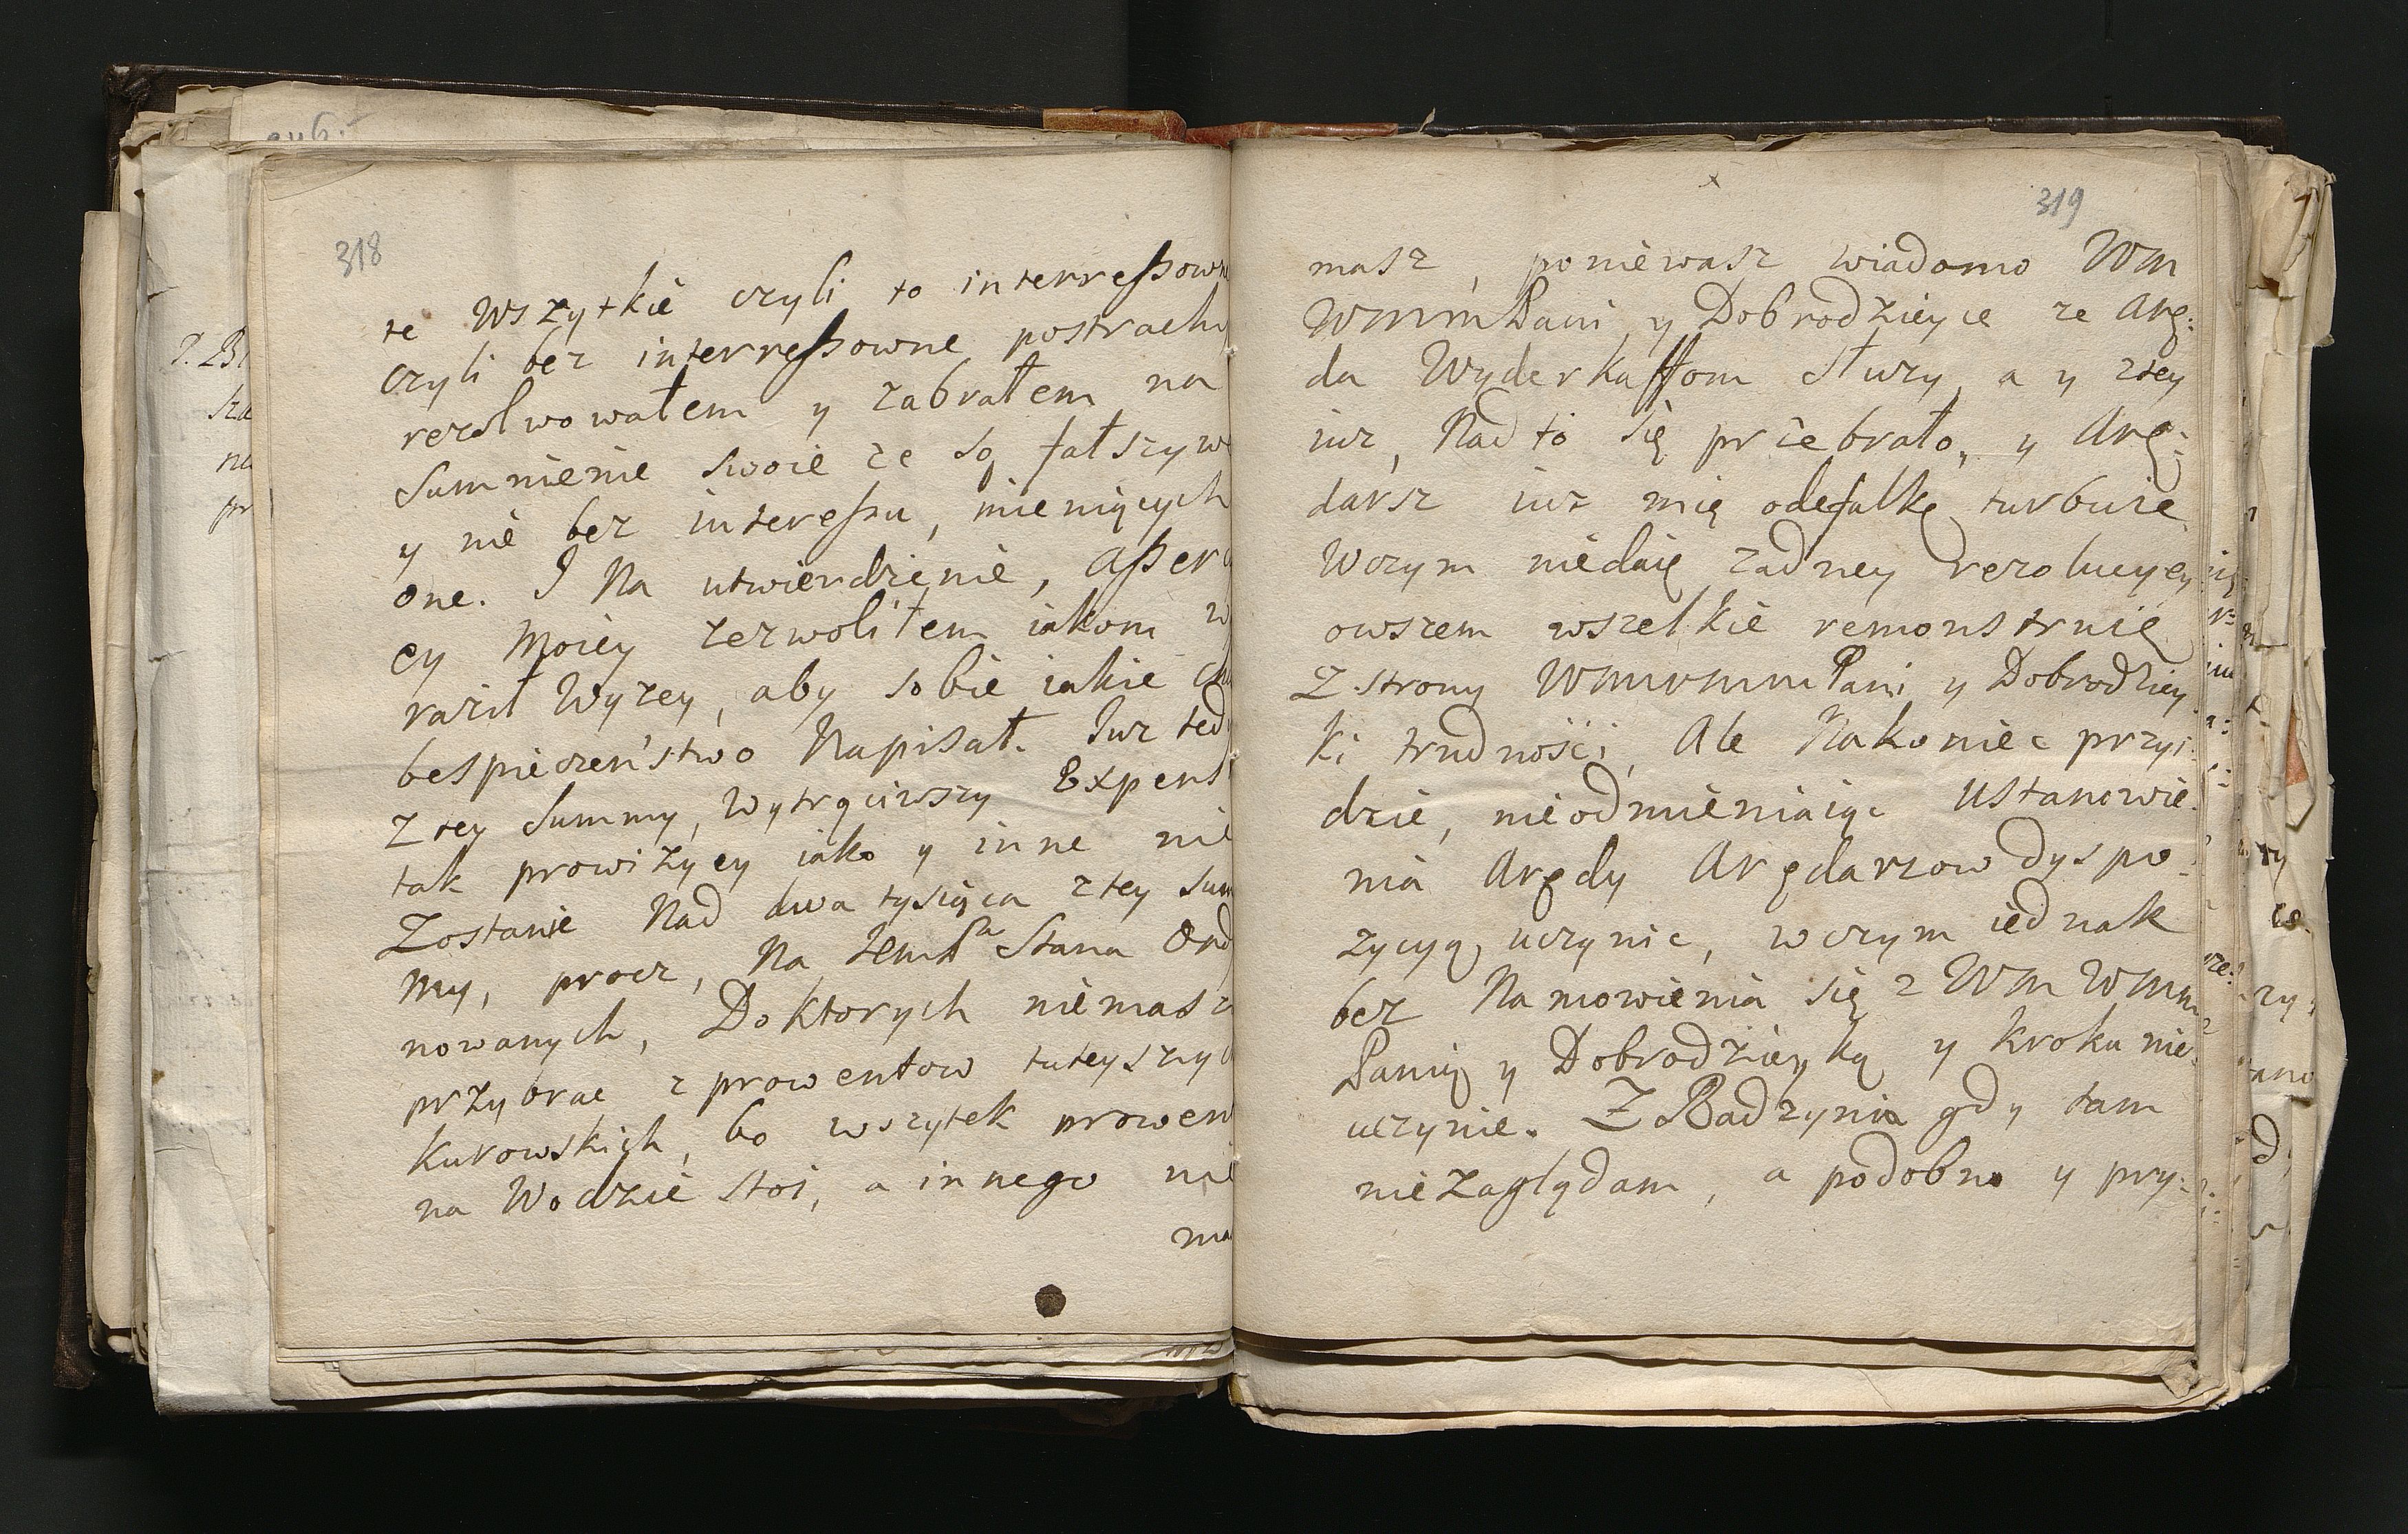 318
te wszytkie czyli to interressowne
czyli bez interressowne postrachy
rezolwowałem y zabrałem na
Sumnienie swoie ze są fałszywe
y nie bez interessu, mieniących
one. I Na utwierdzenie, Asser
cy Moiey zezwoliłem iakom w
raził Wyzey, aby sobie iakie
bespieczeństwo Napisał. Iuz ted
Z tey Summy, Wytrąciwszy Expens
tak prowizycy iako y inne nie
Zostanie Nad dwa tysiąca z tey Sum
my, procz, Na Stana Ord
nowanych, Do Ktorych niemasz
przybrac z prowentow tuteyszych
Kurowskich, bo wszytek prowen
na Wodzie stoi, a innego nie
ma
319
masz, poniewasz wiadomo Wm
WmmPani y Dobrodzieyce ze Arę:
da Wyderkaffom słuzy, a y ztey
iuz, Nad to się przebrało, y Arę:
darsz iuz mię odefalkę turbuie
Wczym niedaię zadney rezolucyey
owszem wszelkie remonstruię
Z strony WmmmPani y Dobrodziey
ki trudności, Ale Nakoniec przyi:
dzie, nieodmieniaiąc Ustanowie:
nia Arędy Arędarzow dyspo:
zycyą uczynic, wczym iednak
bez Namowienia się z Wm Wmm
Panią y Dobrodzieyką y kroku nie:
uczynie. Z Badzynia gdy tam
nie zaglądam, a podobno y pry: